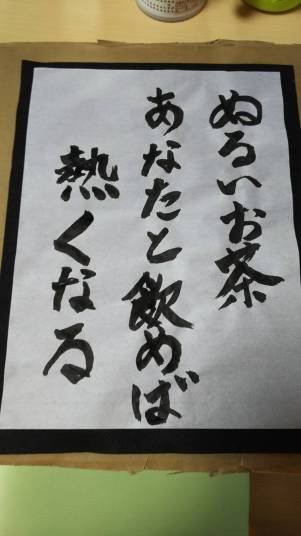 ぬるいお茶
あなたと飲めば
熱くなる